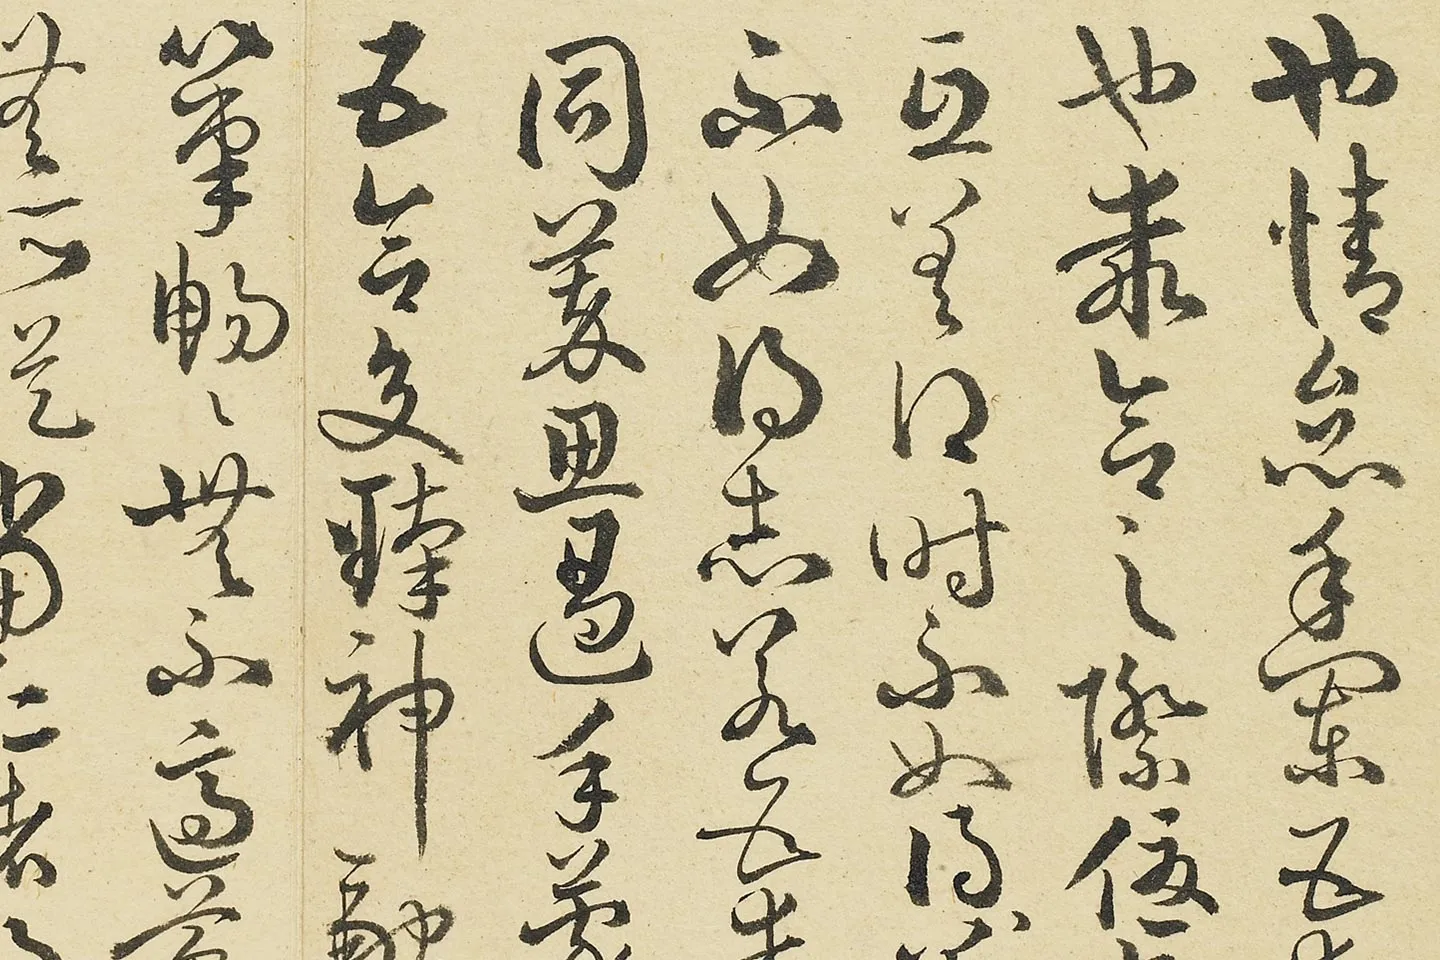 也情怠手闌五
也乖合之際優
互差得時不如得
不如得志若五乖
同萃思遏手蒙
五合交臻神融
筆暢〻無不適蒙
無所從當仁者